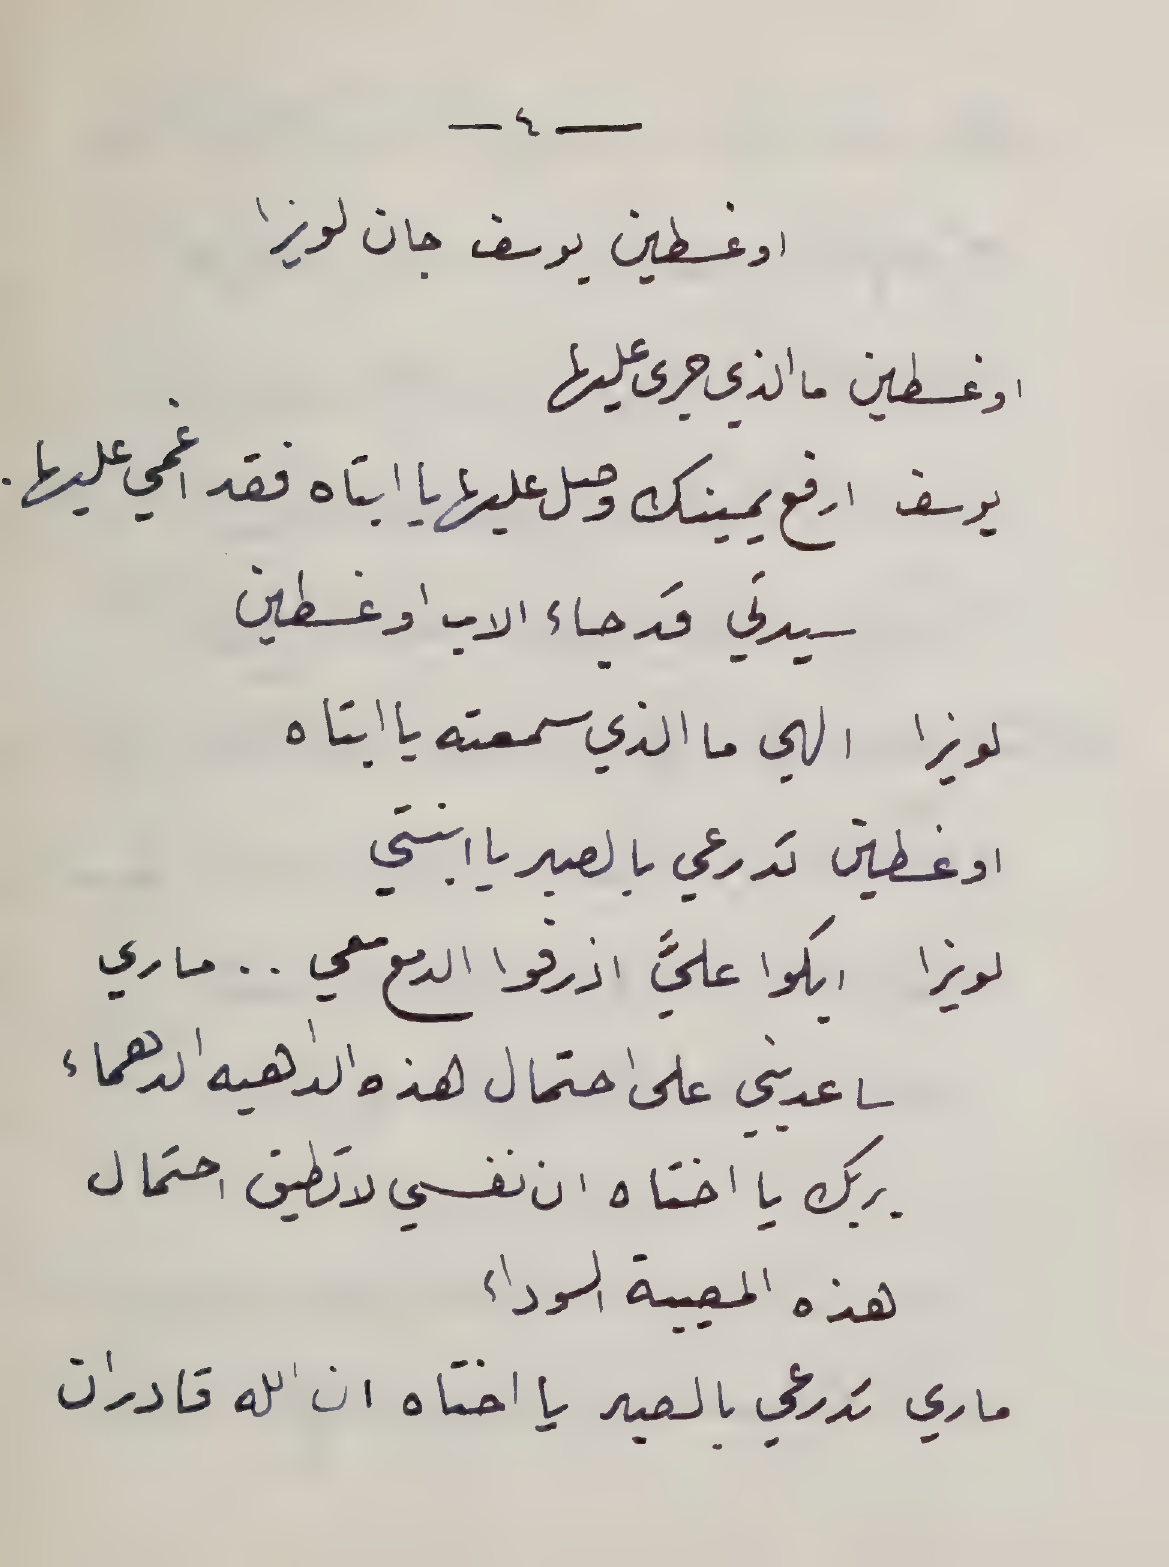 — ٤ —
اوغسطين يوسف جان لويزا
اوغسطين ما الذي جرى عليها
يوسف ارفع يمينك وصل عليها يا ابتاه فقد اغمي عليها .
سيدتي قد جاء الاب اوغسطين
لويزا الهي ما الذي سمعته يا ابتاه
اوغسطين تدرعي بالصبر يا ابنتي
لويزا ابكوا عليَّ اذرفوا الدمع معي . . ماري
ساعديني على احتمال هذه الداهيه الدهماء
بربك يا اختاه ان نفسي لا تطيق احتمال
هذه المصيبة السوداء
ماري تدرعي بالصبر يا اختاه ان الله قادر ان